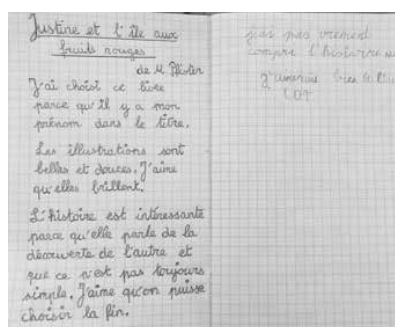 Justine et l'île aux
fruits rouges
de M Pfister
J'ai choisi ce livre
parce qu'il y a mon
prénom dans le titre.
Les illustrations sont
belles et douces. J'aime
qu'elles brillent.
L'histoire est intéressante
parce qu'elle parle de la
découverte de l'autre et
que ce n'est pas toujours
simple. J'aime qu'on puisse
choisir la fin.
j'ai pas vrement
compri l'histoire